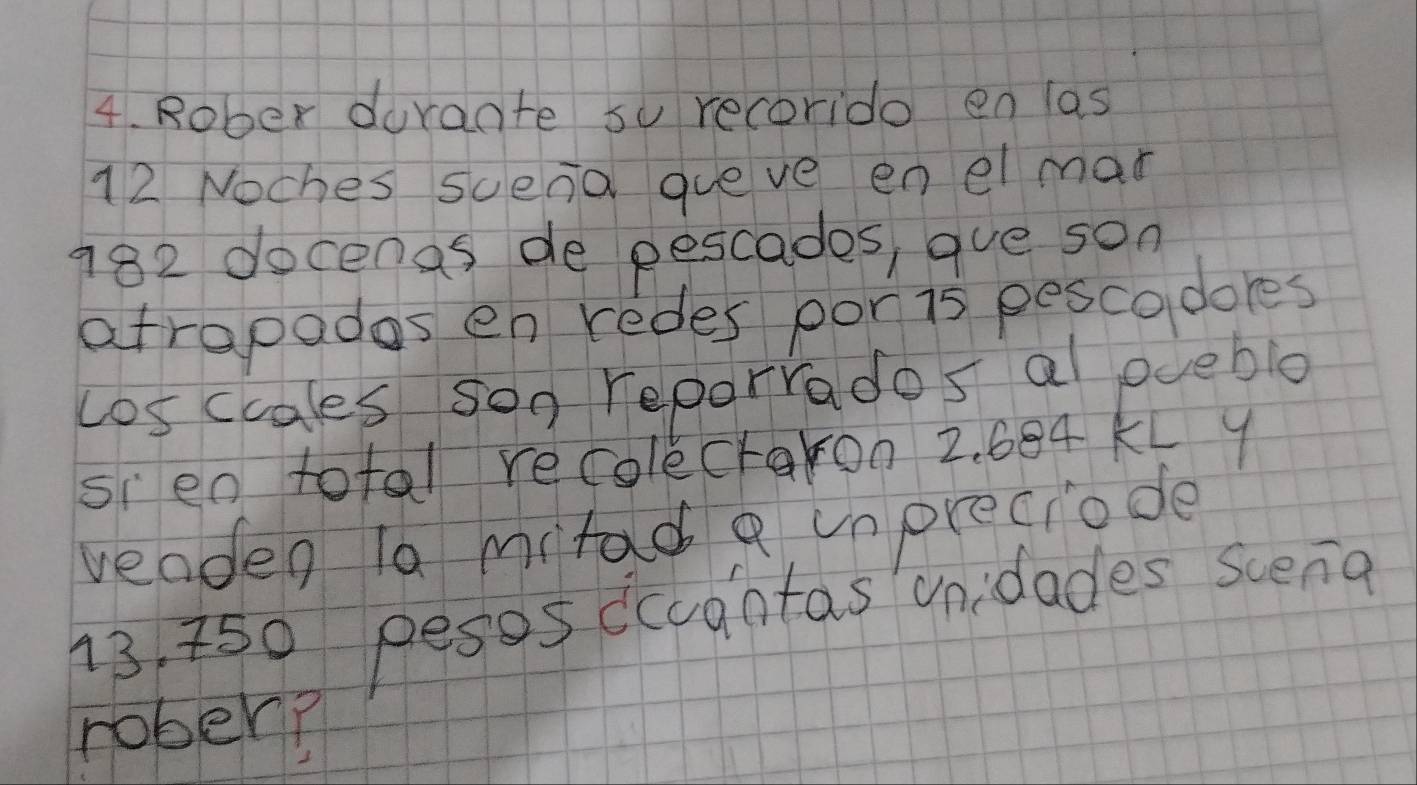 4. Rober durante su recorido en las
12 Noches sueña que ve en el mar
182 docenas de pescados, que son
atrapados en redes por 15 pescadores
Los cuales son reparrados al pueblo
si en total recolectaron 2.684 KL y
venden la mitad a un precio de
13.750 pesos ¿cuántas unidades sueña
rober?